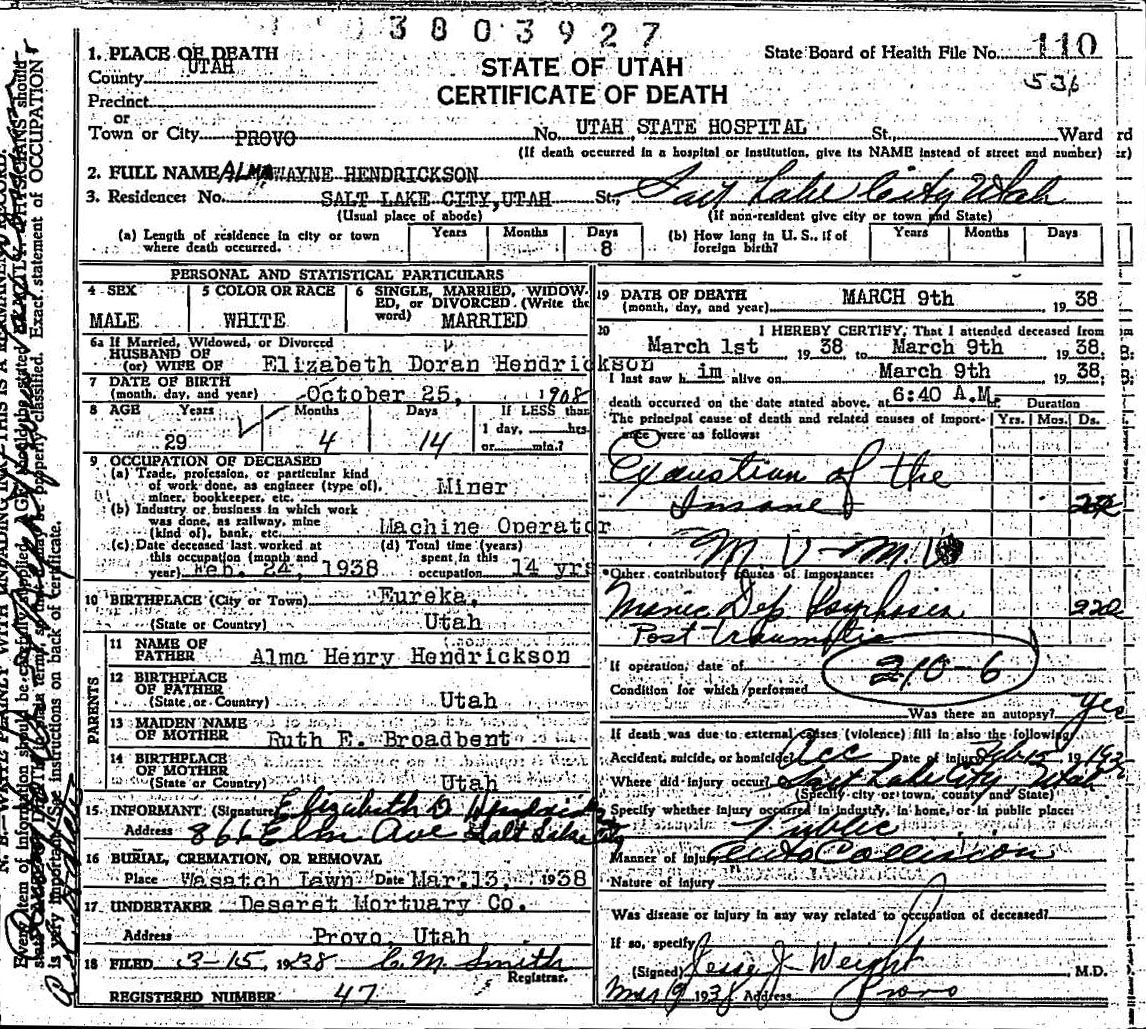 3803927
1. PLACE OF DEATH
State Board of Health File No. 110
County UTAH
STATE OF UTAH
536
Precinct
CERTIFICATE OF DEATH
or
Town or City PROVO No. UTAH STATE HOSPITAL St., Ward
(If death occurred in a hospital or institution, give its NAME instead of street and number)
2. FULL NAME ALMA WAYNE HENDRICKSON
3. Residence: No. SALT LAKE CITY, UTAH St., Salt Lake City Utah
(Usual place of abode) (If non-resident give city or town and State)
(a) Length of residence in city or town where death occurred. Years Months Days 8
(b) How long in U. S., if of foreign birth? Years Months Days
PERSONAL AND STATISTICAL PARTICULARS
4 SEX 5 COLOR OR RACE 6 SINGLE, MARRIED, WIDOW-
ED, or DIVORCED. (Write the
word)
MALE WHITE MARRIED
6a If Married, Widowed, or Divorced
HUSBAND OF
(or) WIFE OF Elizabeth Doran Hendrickson
7 DATE OF BIRTH
(month, day, and year) October 25, 1908
8 AGE Years Months Days If LESS than
1 day, hrs
29 4 14 or min.?
9 OCCUPATION OF DECEASED
(a) Trade, profession, or particular kind
of work done, as engineer (type of),
miner, bookkeeper, etc. Miner
(b) Industry or business in which work
was done, as railway, mine
(kind of), bank, etc. Machine Operator
(c) Date deceased last worked at
this occupation (month and
year) Feb. 24, 1938
(d) Total time (years)
spent in this
occupation 14 yrs
10 BIRTHPLACE (City or Town) Eureka,
(State or Country) Utah
PARENTS
11 NAME OF
FATHER Alma Henry Hendrickson
12 BIRTHPLACE
OF FATHER
(State or Country) Utah
13 MAIDEN NAME
OF MOTHER Ruth E. Broadbent
14 BIRTHPLACE
OF MOTHER
(State or Country) Utah
15 INFORMANT (Signature) Elizabeth D
Address 866 Elm Ave Salt Lake
16 BURIAL, CREMATION, OR REMOVAL
Place Wasatch Lawn Date Mar. 13, 1938
17 UNDERTAKER Deseret Mortuary Co.
Address Provo, Utah
18 FILED 3-15, 1938 C. M. Smith
Registrar.
REGISTERED NUMBER 47
19 DATE OF DEATH
(month, day, and year) MARCH 9th 19 38
20 I HEREBY CERTIFY, That I attended deceased from
March 1st 19 38 to March 9th 19 38.
I last saw h im alive on March 9th 19 38.
death occurred on the date stated above, at 6:40 A.M. Duration
The principal cause of death and related causes of import-
ance were as follows: Yrs. Mos. Ds.
Exaustian of the
Insane
M. V - M. V
Other contributory causes of importance:
Manic Dep. Psychosis
Post traumatic
If operation, date of
210-6
Condition for which performed
Was there an autopsy? Yes
If death was due to external causes (violence) fill in also the following:
Accident, suicide, or homicide? Acc Date of injury Feb. 15 19
Where did injury occur? Salt Lake City Utah
(Specify city or town, county and State)
Specify whether injury occurred in industry, in home, or in public place:
Public
Manner of injury Auto Collision
Nature of injury
Was disease or injury in any way related to occupation of deceased?
If so, specify
(Signed) Jesse J. Weight M.D.
Mar 9 1938 Address Provo